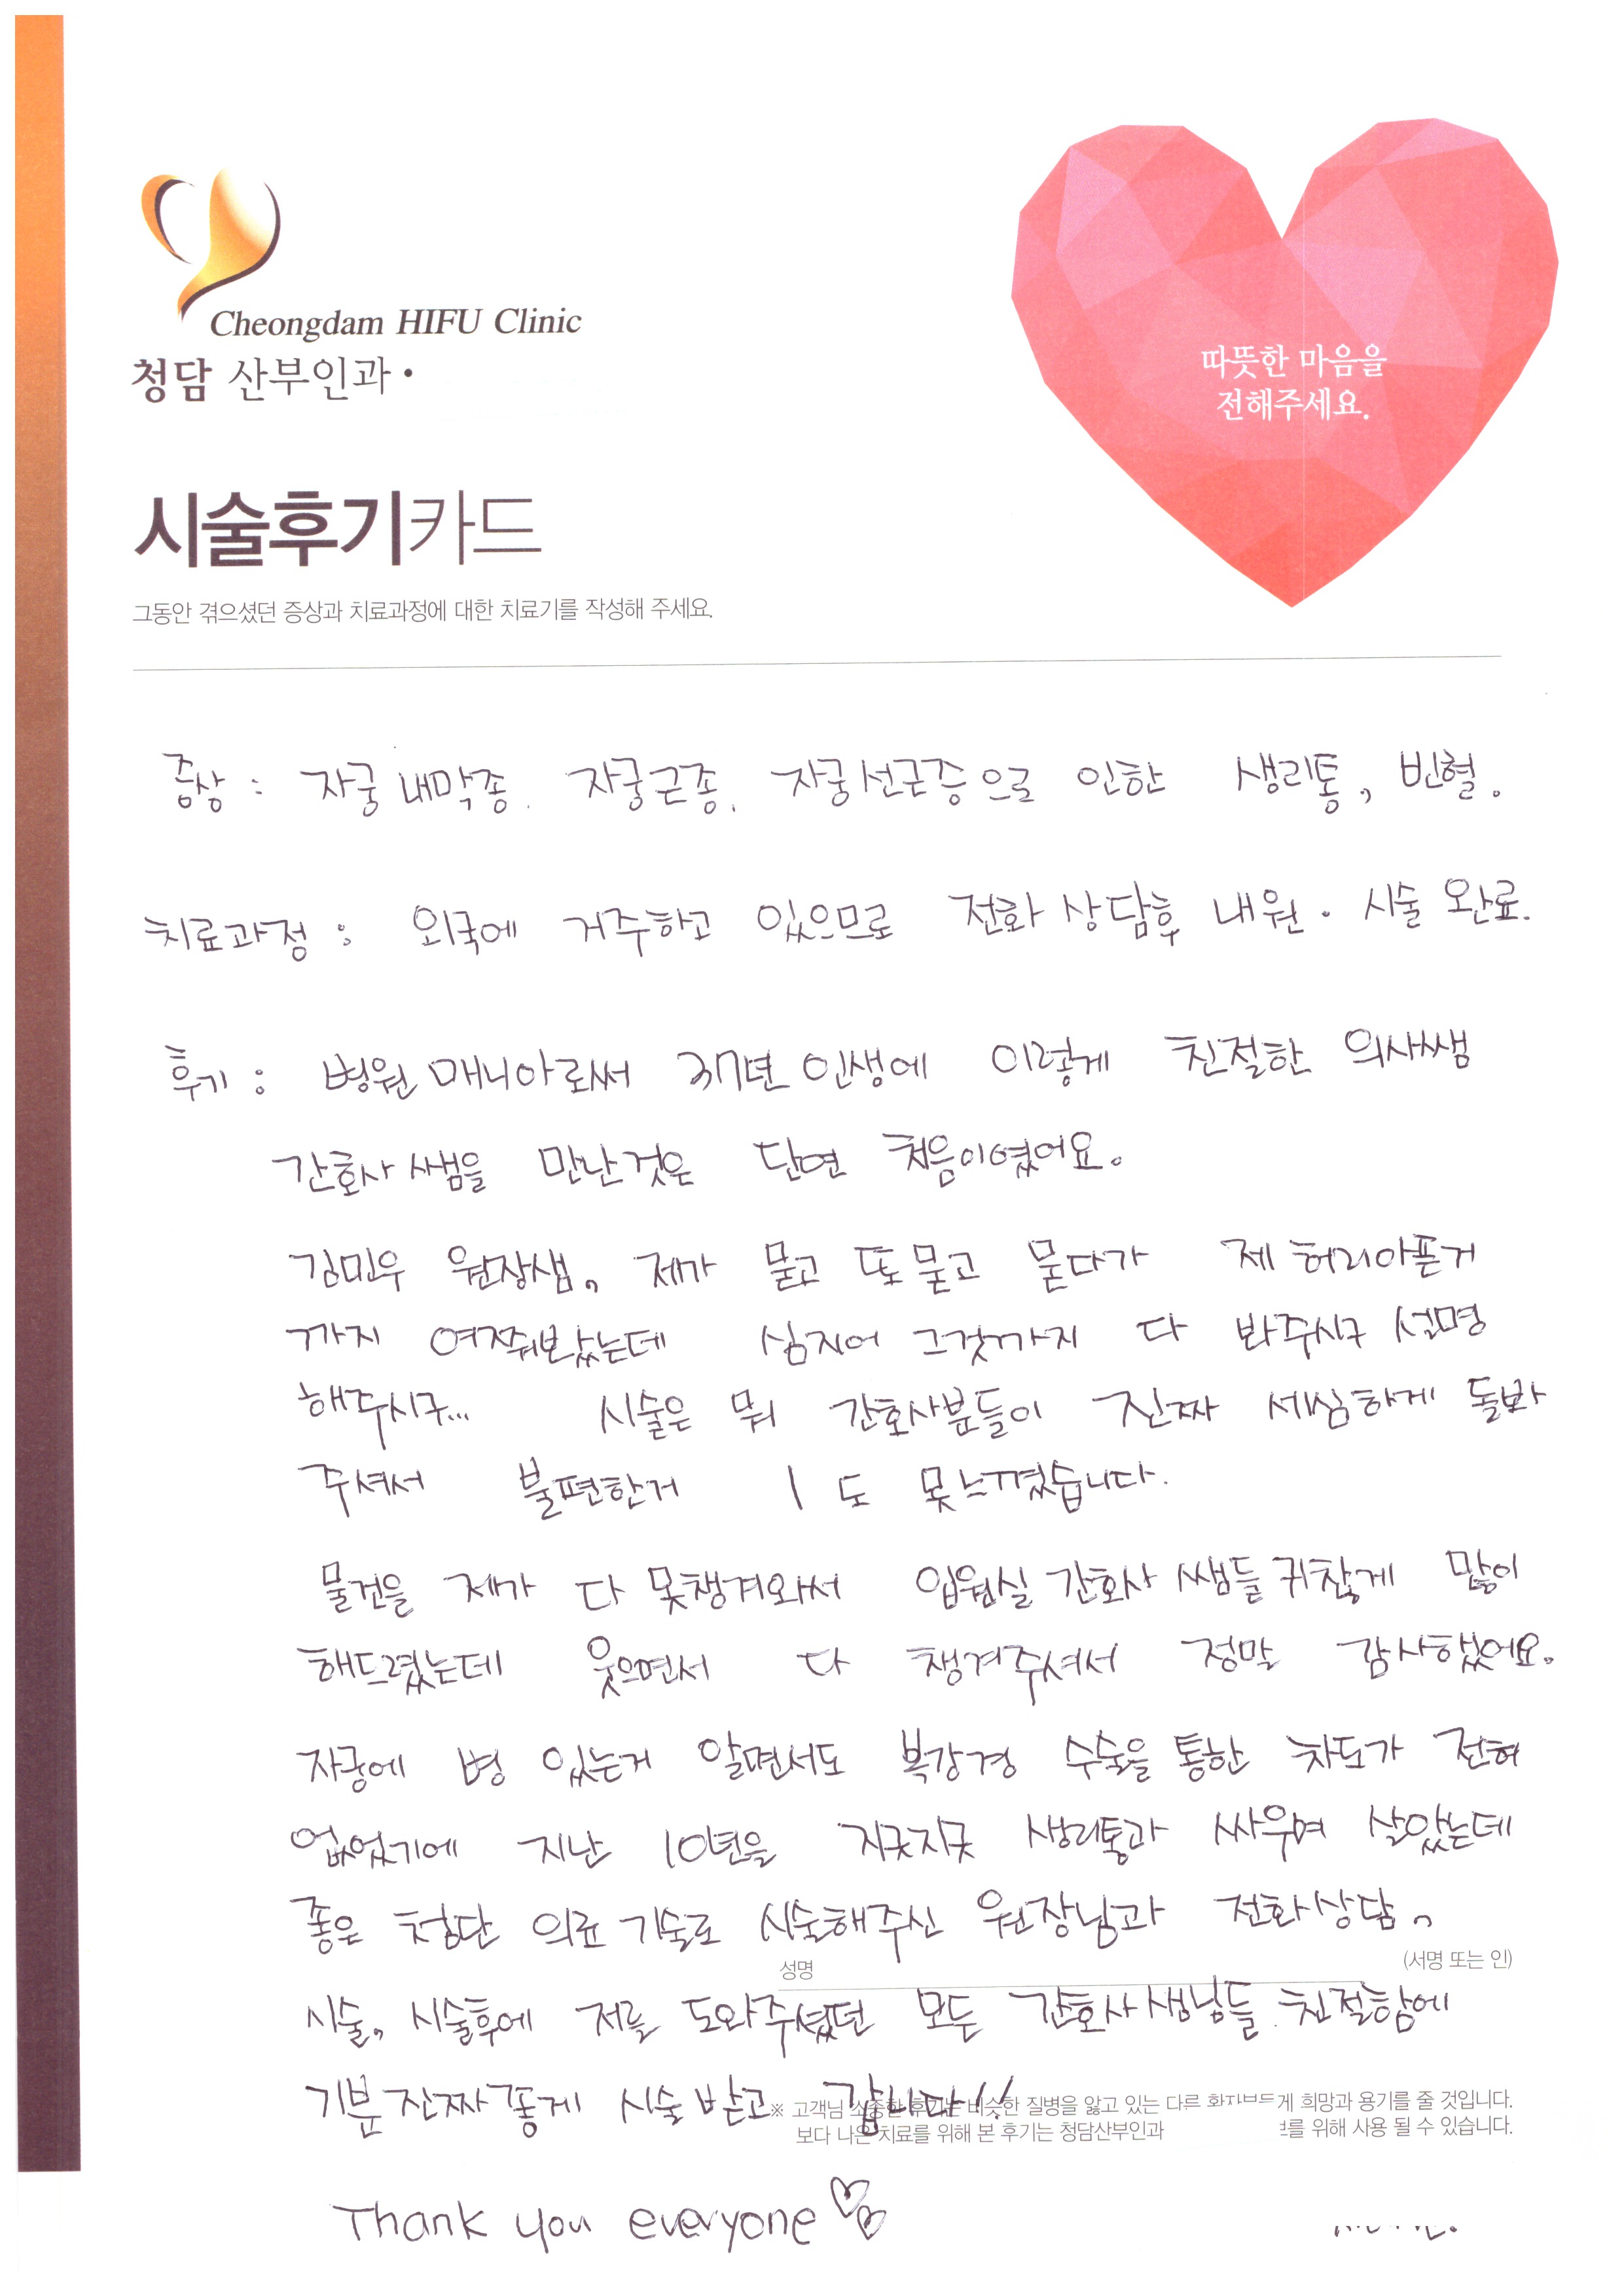 Cheongdam HIFU Clinic
청담 산부인과
따뜻한 마음을
전해주세요.
시술후기카드
그동안 겪으셨던 증상과 치료과정에 대한 치료기를 작성해 주세요.
증상 : 자궁내막종. 자궁근종. 자궁선근증으로 인한 생리통, 빈혈.
치료과정 : 외국에 거주하고 있으므로 전화 상담후 내원. 시술 완료.
후기 : 병원 매니아로써 37년 인생에 이렇게 친절한 의사쌤
간호사 쌤을 만난것은 단연 처음이였어요.
김민우 원장샘, 제가 묻고 또 묻고 묻다가 제 허리아픈거
까지 여쭤봤는데 심지어 그것까지 다 봐주시구 설명
해주시구... 시술은 뭐 간호사분들이 진짜 세심하게 돌봐
주셔서 불편한거 1도 못느꼈습니다.
물건을 제가 다 못챙겨와서 입원실 간호사 쌤들 귀찮게 많이
해드렸는데 웃으면서 다 챙겨주셔서 정말 감사했어요.
자궁에 병 있는거 알면서도 복강경 수술을 통한 차도가 전혀
없었기에 지난 10년을 지긋지긋 생리통과 싸우며 살았는데
좋은 첨단 의료 기술로 시술해주신 원장님과 전화상담,
성명 (서명 또는 인)
시술, 시술후에 저를 도와주셨던 모든 간호사 샘님들 친절함에
기분 진짜 좋게 시술 받고 갑니다!!
※ 고객님 소중한 후기는 비슷한 질병을 앓고 있는 다른 게 희망과 용기를 줄 것입니다.
보다 나은 치료를 위해 본 후기는 청담산부인과 를 위해 사용 될 수 있습니다.
Thank you everyone